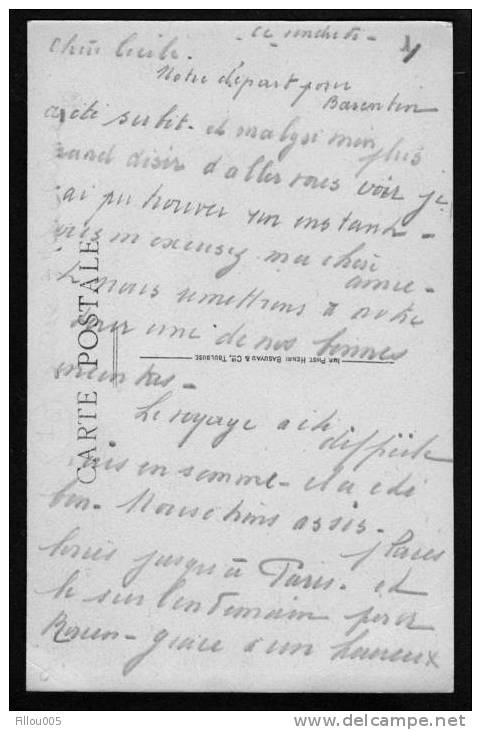 ce
Chère Cécile.
Notre départ pour
Barentin
a été subit. et malgré mon plus
grand désir d'aller vous voir je
n'ai pu trouver un instant -
vous m'excusez ma chère
amie -
nous remettrons à notre
une de nos bonnes
Le voyage a été
difficile
mais en somme - il a été
bon - Nous étions assis -
places
louées jusqu'à Paris - et
le surlendemain pour
Rouen - grâce à un heureux
CARTE POSTALE
IMP. PHOT. HENRI BASUYAU & Cie, TOULOUSE
Filou005